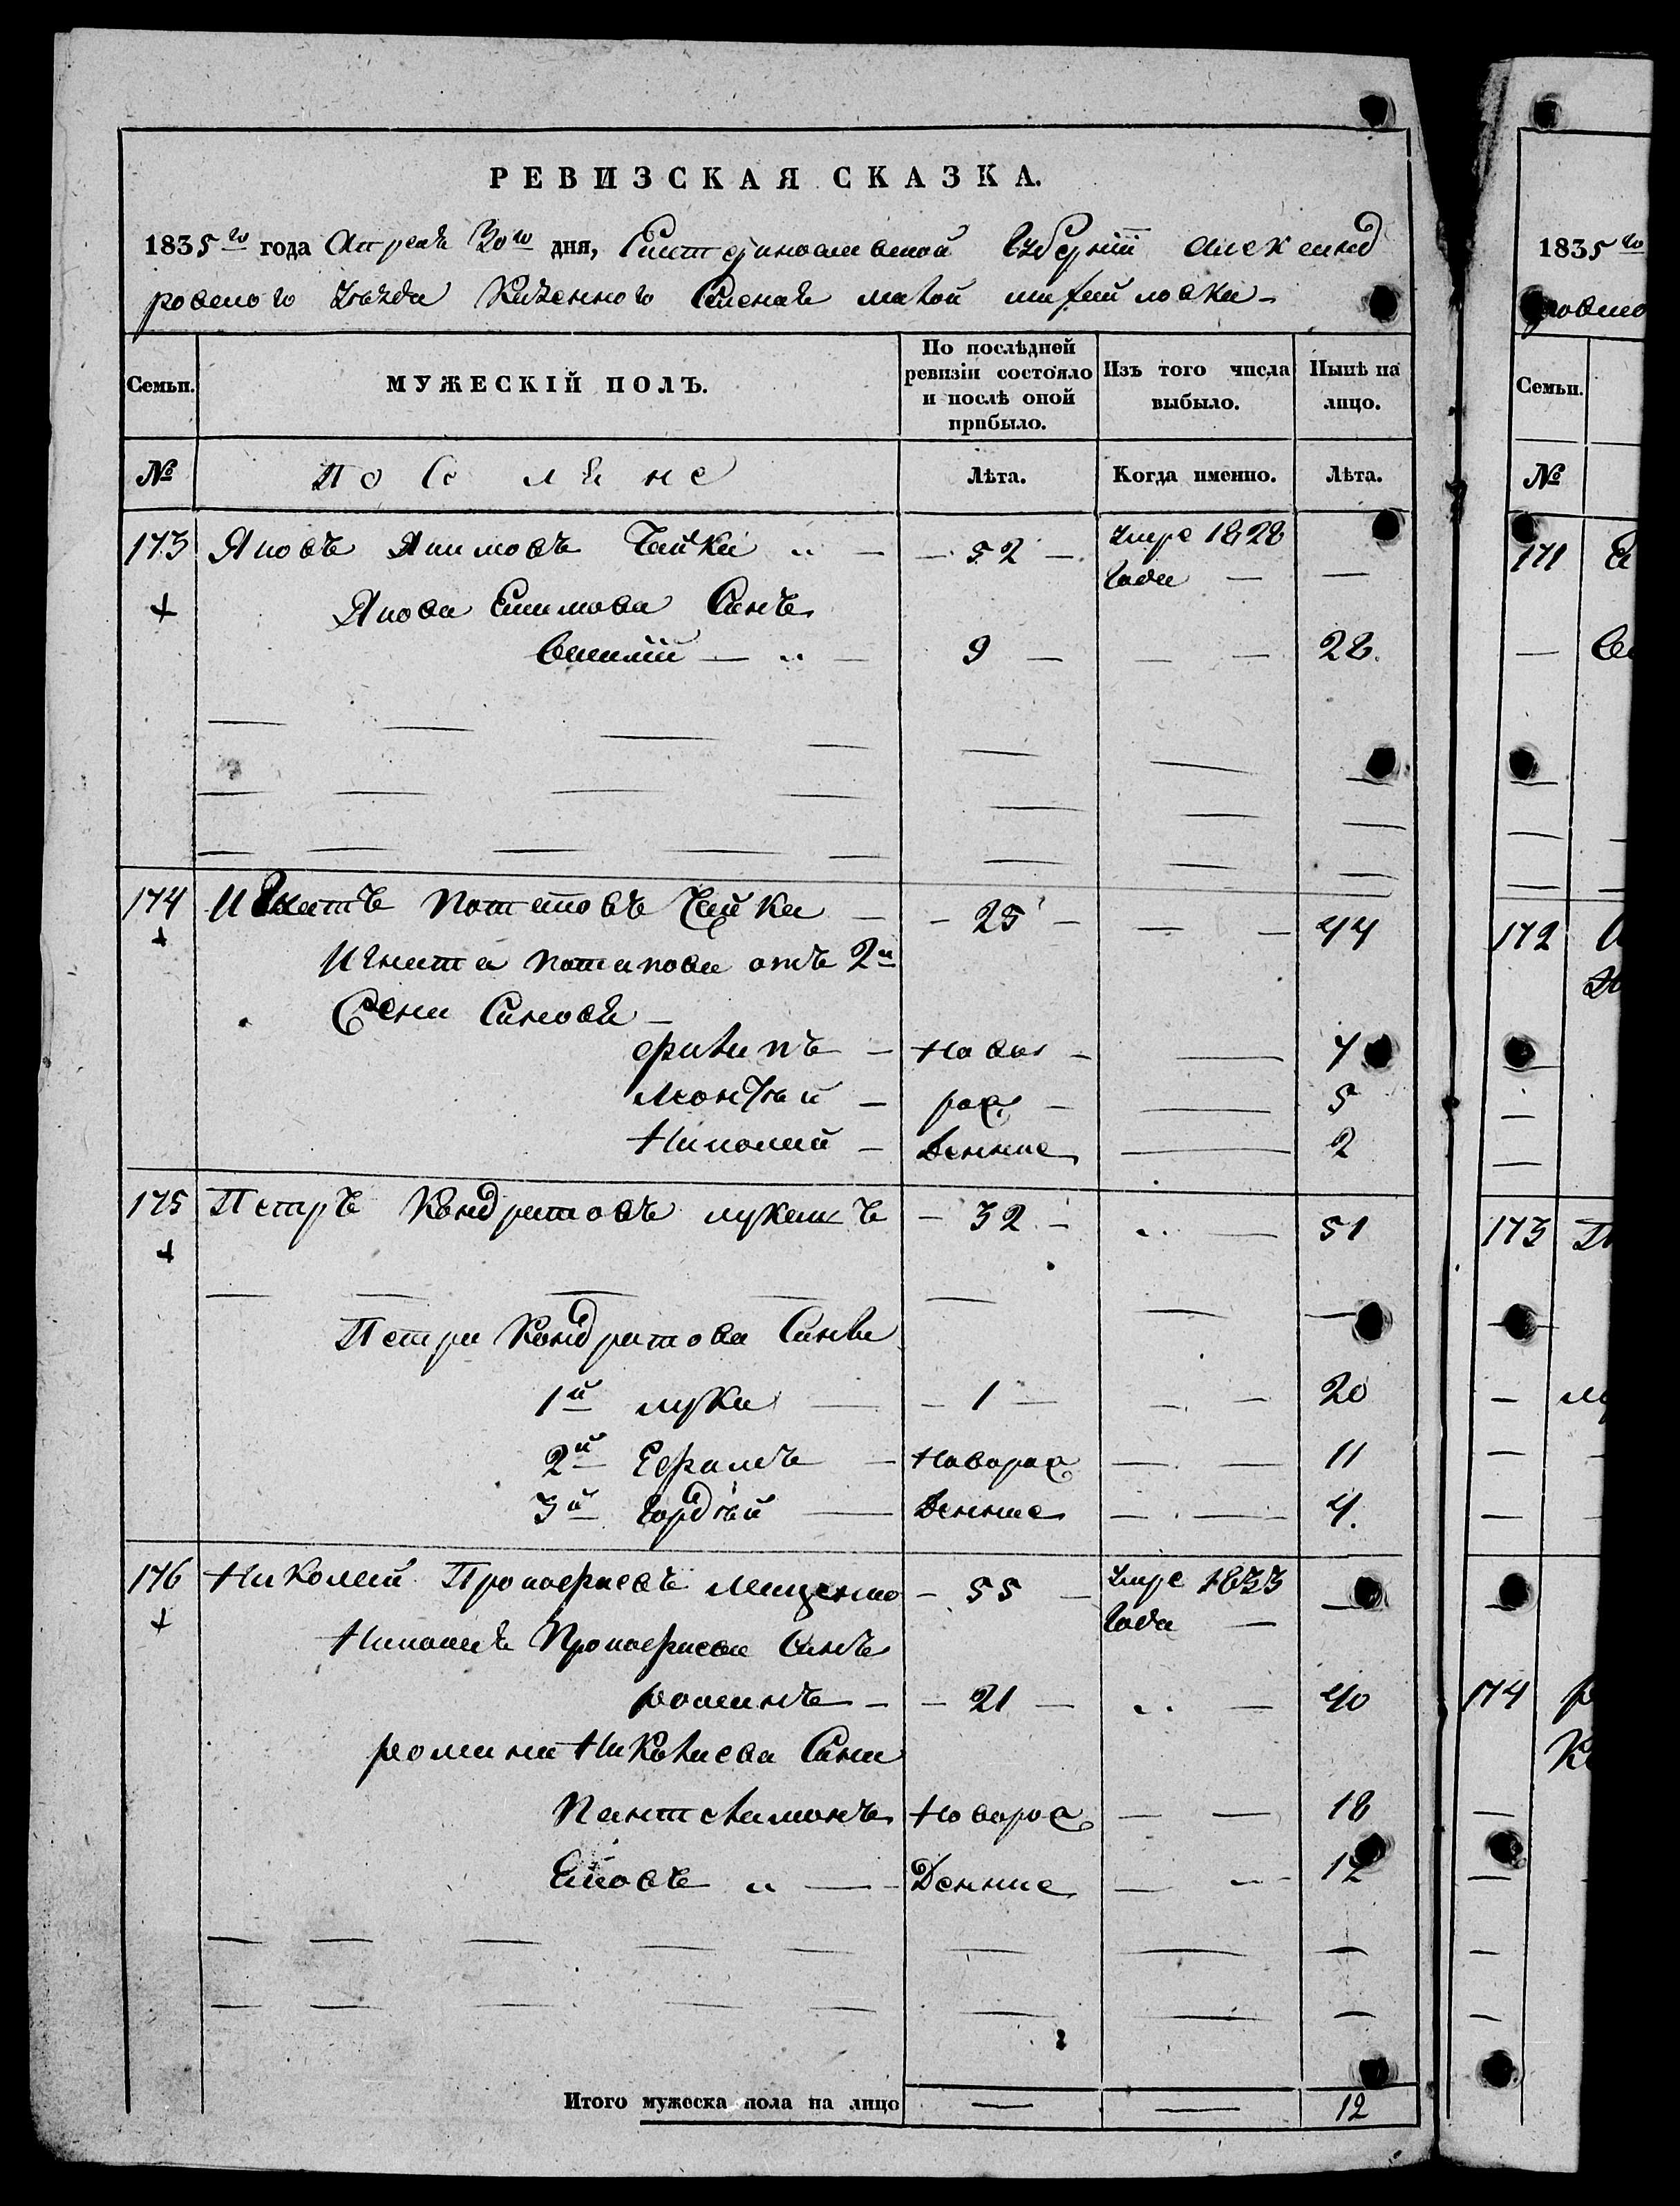 РЕВИЗСКАЯ СКАЗКА.
1835го года Апреля 30го дня, Екатеринославской Губернии Александ
ровского уезда Казенного Селения малой михайловки
Семьи. МУЖЕСКІЙ ПОЛЪ. По послѣдней ревизіи состояло и послѣ оной прибыло. Изъ того числа выбыло. Нынѣ на лицо.
№ Лѣта. Когда именно. Лѣта.
173 Яковъ Якимовъ Чайка 52 умре 1828
года
Якова Екимова Синъ
Василій 9 28.
174 Игнатъ Потаповъ Чайка 25 44
Игната потапова отъ 2й
жени Синовя
филипъ Ново 7
Леонтѣй рож 5
НиколайДенние 2
175 Петръ Кондратовъ лукашъ 32 51
Петра Кондратова Синви
1й лука 1 20
2й ЕфримъНоворож 11
3й Гордѣй Денние 4.
176 Николай Прокофиевъ Мищенко 55 умре 1833
года
Николая Прокофиева Синъ
романъ 21 40
романа Николиева Сини
Пантелимонъ Новорож 18
Яковъ Денние 12
Итого мужеска пола на лицо 12
1835го
Семьи.
№
171
172
173
174